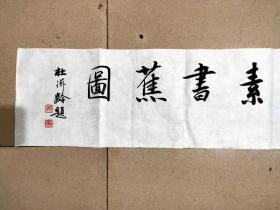 素書蕉圖
杜 齡題